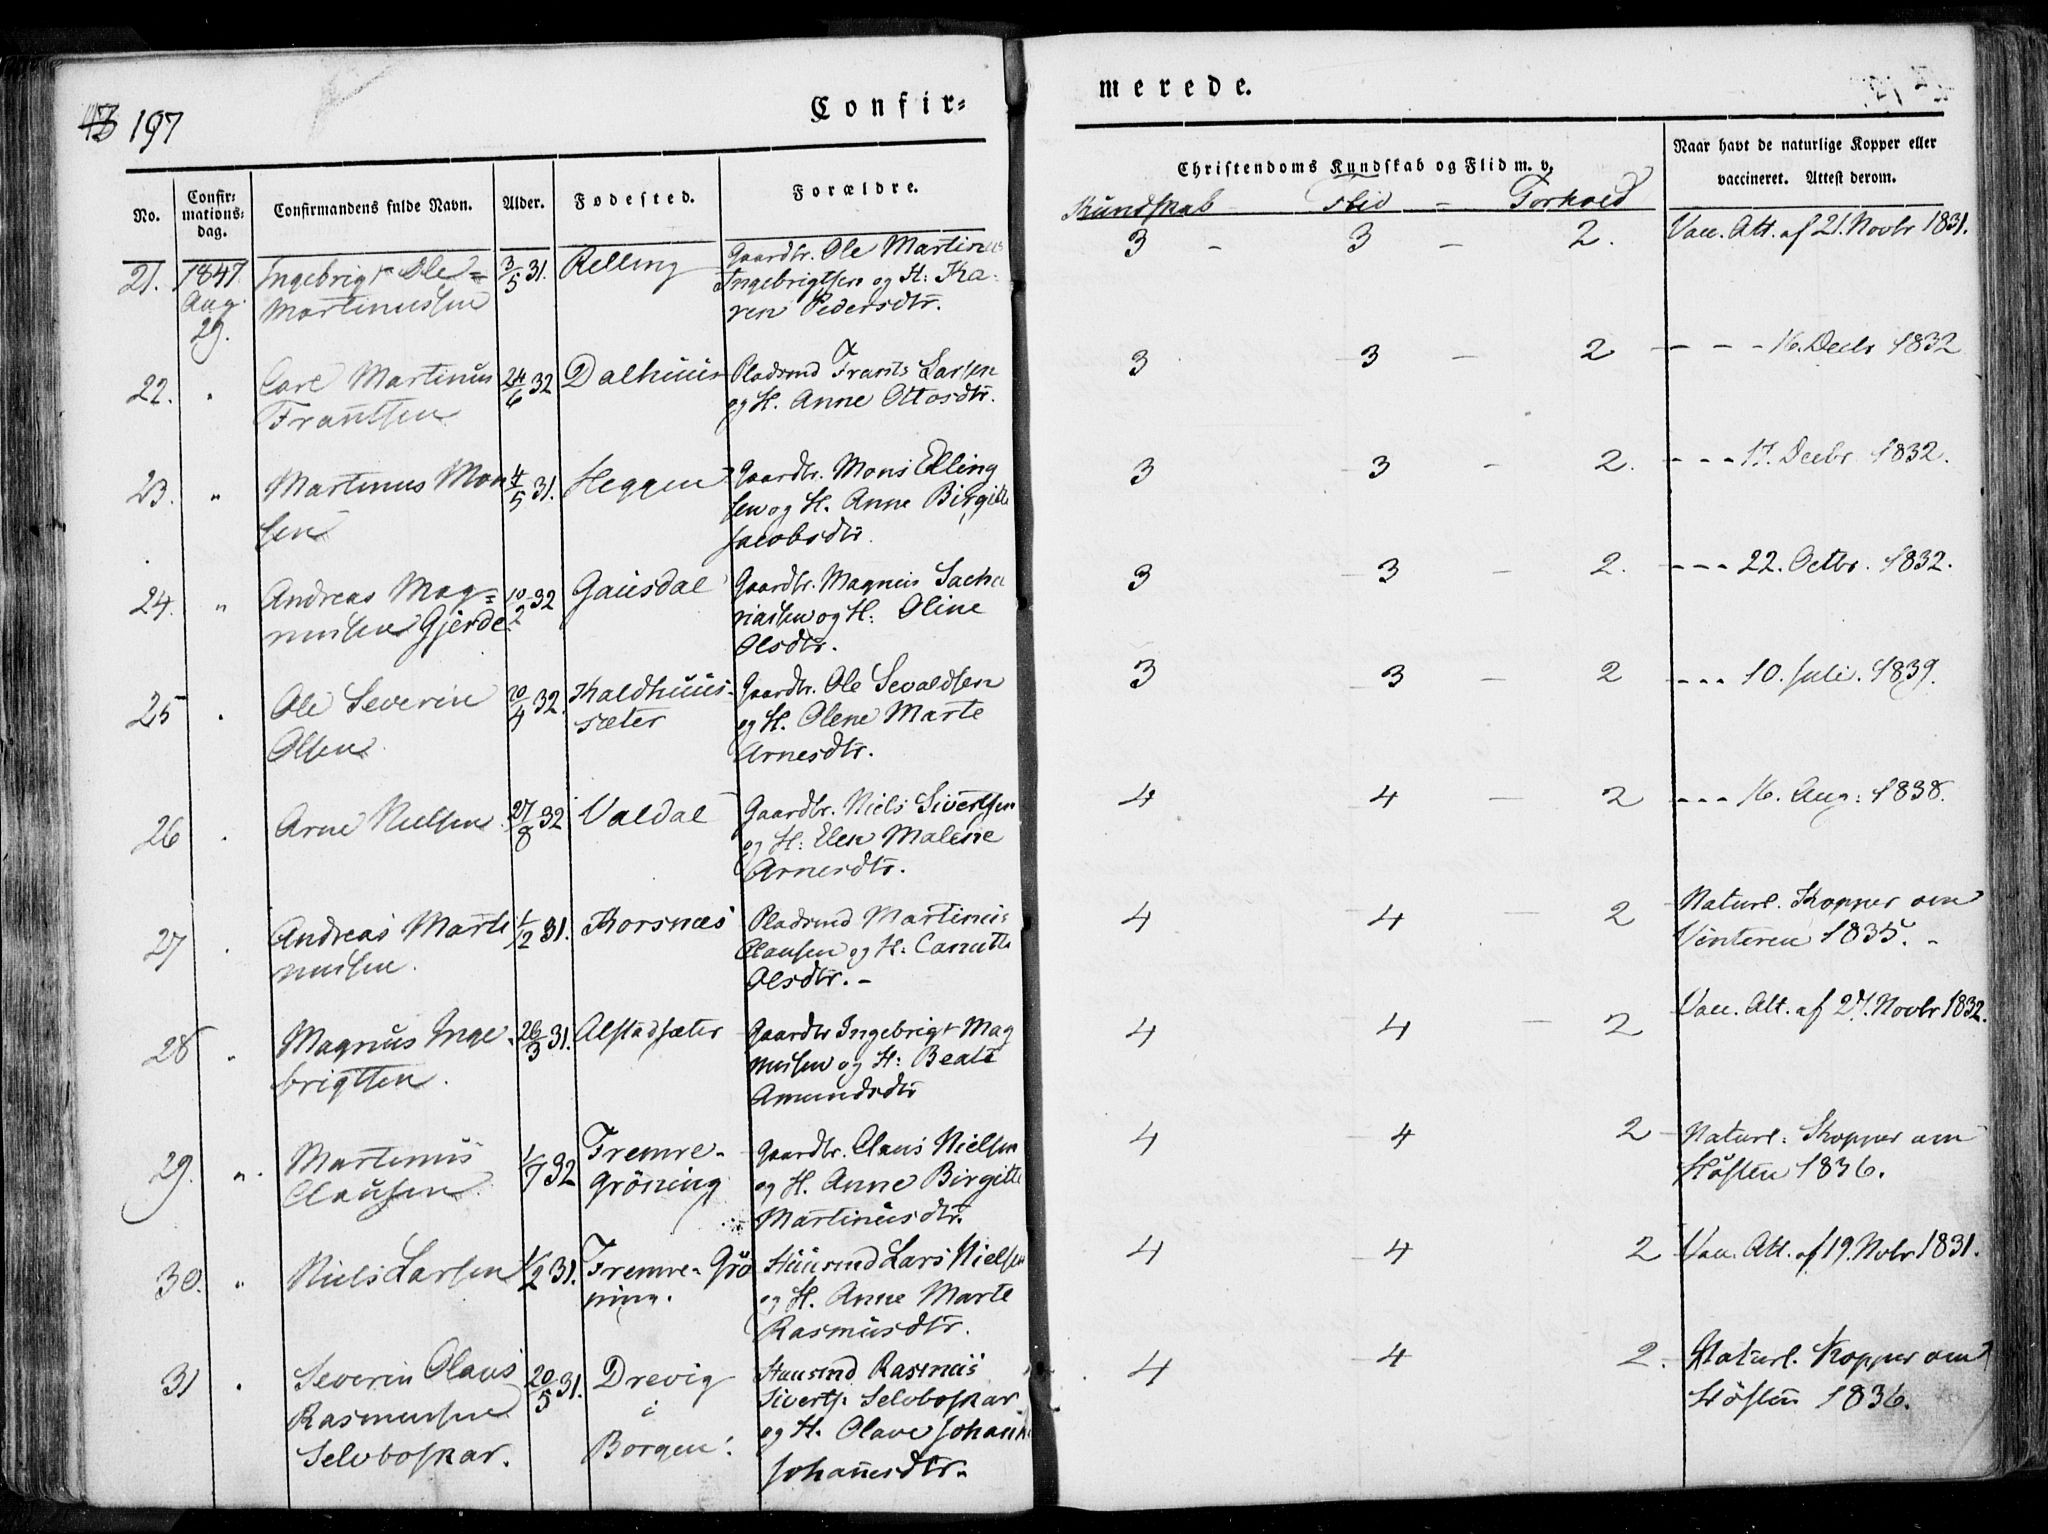 197
Confir=
merede.
No.
Confir=
mations=
dag.
Confirmandens fulde Navn.
Alder.
Fødested.
Forældre.
Christendoms Kundskab og Flid m. v.
Kundskab - Flid - Forhold
Naar havt de naturlige Kopper eller
vaccineret. Attest derom.
21. 1847 Ingebrigt Ole= 3/5 31. Relling Gaardbr. Ole Martinus 3 - 3 - 2. Vacc. Att. af 21. Novbr 1831.
Aug. Martinussen Ingebrigtsen og H: Ka-
29. ren Pedersdtr.
22. " Carl Martinus 24/6 32 Dalhuus Pladsmd Frants Larsen 3 - 3 - 2 - - - 16. Decbr 1832
Frantsen og H. Anne Ottosdtr.
23. " Martinus Mon 4/5 31. Heggen Gaardbr. Mons Elling 3 - 3 - 2. - - - 17. Decbr. 1832.
sen sen og H. Anne Birgitte
Jacobsdtr.
24. " Andreas Mag= 10/2 32 Gausdal Gaardbr. Magnus Sacha 3 - 3 - 2. - - - 22. Octbr. 1832.
nusen Gjerde riassen og H: Oline
Olsdtr.
25 " Ole Severin 20/4 32. Kaldhuus- Gaardbr. Ole Sevaldsen 3 - 3 - 2 - - - 10. Juli. 1839.
Olsen sæter og H. Olene Marte
Arnesdtr.
26 " Arne Nielsen 27/8 32 Valdal Gaardbr. Niels Sivertsen 4 - 4 - 2 - - - 16. Aug: 1838.
og H: Elen Malene
Arnesdtr.
27 " Andreas Marti 1/12 31. Korsnæs Pladsmd Martinus 4 - 4 - 2 Naturl. Kopper om
nusen. Clausen og H: Canutte Vinteren 1835. -
Olsdtr. -
28 " Magnus Inge 26/3 31. Alstadsæter Gaardbr Ingebrigt Mag 4 - 4 - 2 Vacc. Att. af 27. Novbr 1832.
brigtsen. nusen og H: Beate
Amundsdtr
29. " Martinus 1/7 32 Fremre- Gaardbr. Claus Nielsen 4 - 4 2 Naturl: Kopper om
Clausen Grøning og H. Anne Birgitte Høsten 1836.
Martinusdtr.
30. " Niels Larsen 1/2 31. Fremre-Grø Huusmd Lars Nielsen 4 - 4 2 Vacc. Att. af 19. Novbr 1831.
ning. og H. Anne Marte
Rasmusdtr.
31 " Severin Olaus 20/5 31. Drevig Huusmd Rasmus 4 - 4 2. Naturl. Kopper om
Rasmussen i Sivertss. Selvboskar Høsten 1836.
Selvboskar. Borgen. og H. Olave Johanne
Johannesdtr.